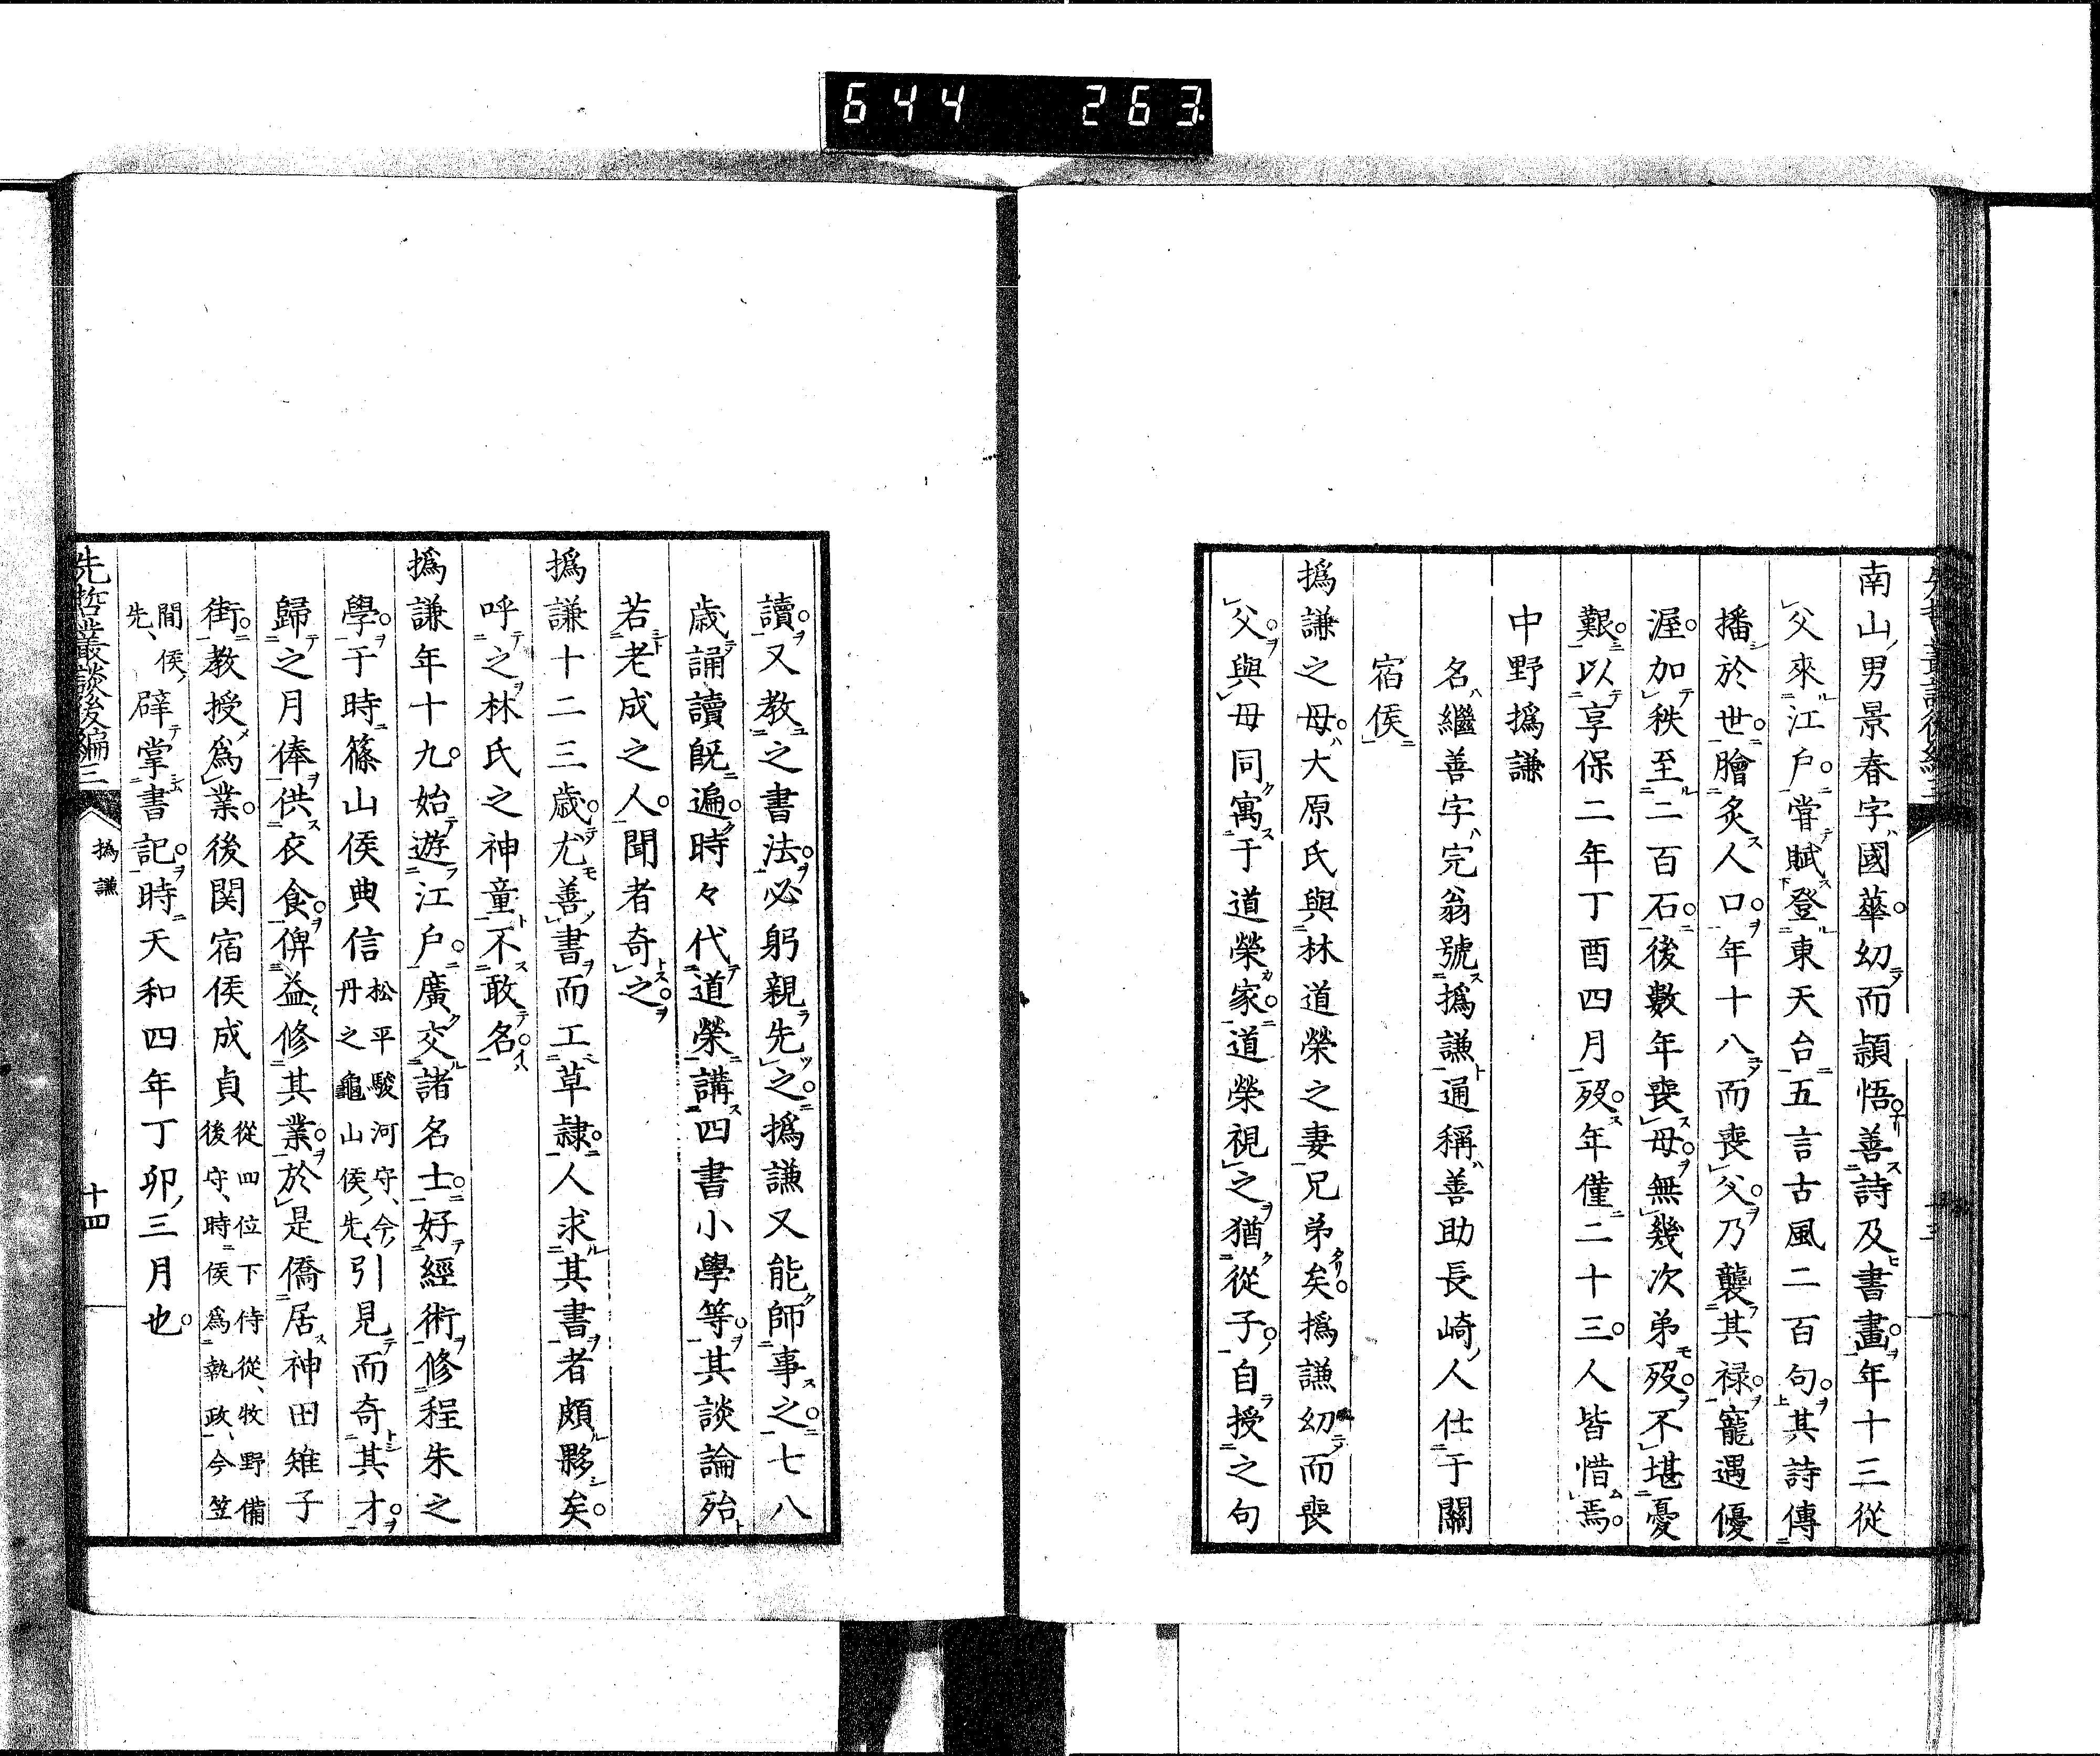 644 263
南山男景春字國華幼而頴悟善詩及書畫年十三從
父來江戶嘗賦登東天台五言古風二百句其詩傳
播於世膾炙人口年十八而喪父乃襲其禄寵遇優
渥加秩至二百石後數年喪母無幾次弟歿不堪憂
艱以享保二年丁酉四月歿年僅二十三人皆惜焉
中野撝謙
名繼善字完翁號撝謙通稱善助長崎人仕于關
宿侯
撝謙之母大原氏與林道榮之妻兄弟矣撝謙幼而喪
父與母同寓于道榮家道榮視之猶從子自授之句
讀又教之書法必躬親先之撝謙又能師事之七八
歳誦讀既遍時々代道榮講四書小學等其談論殆
若老成之人聞者奇之
撝謙十二三歳尤善書而工草隷人求其書者頗夥矣
呼之林氏之神童不敢名
撝謙年十九始遊江戶廣交諸名士好經術修程朱之
學于時篠山侯典信松平駿河守、今丹之龜山侯先、引見而奇其才
歸之月俸供衣食俾益修其業於是僑居神田雉子
街教授爲業後関宿侯成貞從四位下侍從、牧野備後守、時侯爲執政、今笠
間侯先、辟掌書記時天和四年丁卯三月也
先哲叢談後編三
撝謙
十四